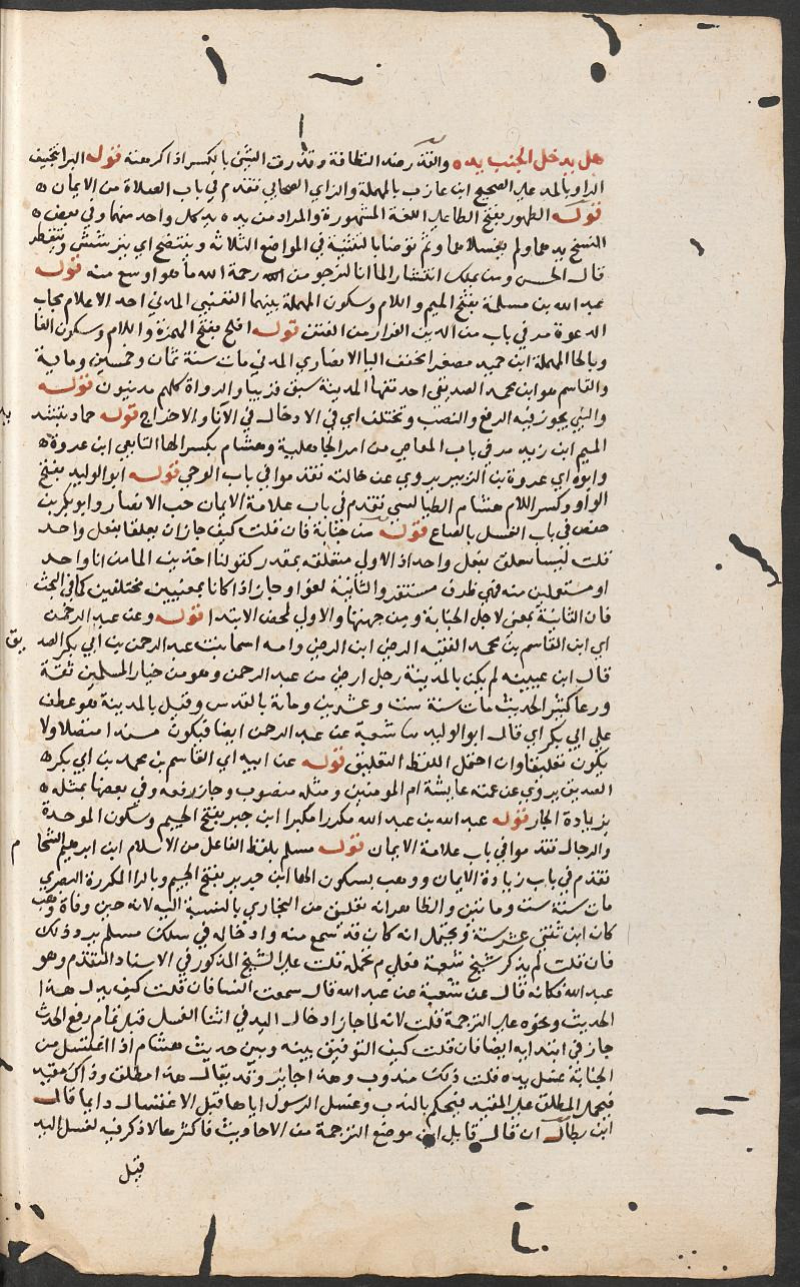 هل يدخل الجنب يده والقذر ضد النظافة وقذرت الشيء بالكسر اذا كرهته قوله البرا بتخفيف
الراء وبالمد على الصحيح ابن عازب بالمهملة والزاي الصحابي تقدم في باب الصلاة من الايمان
قوله الطهور بفتح الطا على اللغة المشهورة والمراد من يده يد كل واحد منهما وفي بعض
النسخ يدهما ولم يغسلاهما وثم توضا بالتثنية في المواضع الثلاثة وينتضح اي يترشش ويتقطر
قال الحسن ومن يملك انتشار الما انا لنرجو من الله رحمة الله ما هو اوسع منه قوله
عبد الله بن مسلمة بفتح الميم واللام وسكون المهملة بينهما القعنبي المدني احد الاعلام مجاب
الدعوة مر في باب من الدين الفرار من الفتن قوله افلح بفتح الهمزة واللام وسكون الفا
وبالحا المهملة ابن حميد مصغرا مخفف اليا الانصاري المدني مات سنة ثمان وخمسين وماية
والقاسم هو ابن محمد الصديقي احد فقهاء المدينة سبق قريبا والرواة كلهم مدنيون قوله
والنبي يجوز فيه الرفع والنصب وتختلف اي في الادخال في الانا والاخراج قوله حماد بتشد
يد
الميم ابن زيد مر في باب المعاصي من امر الجاهلية وهشام بكسر الها التابعي ابن عروة
وابوه اي عروة بن الزبير يروي عن خالته تقدموا في باب الوحي قوله ابو الوليد بفتح
الواو وكسر اللام هشام الطيالسي تقدم في باب علامة الايمان حب الانصار وابو بكر بن
حفص في باب الغسل بالصاع قوله من جنابة فان قلت كيف جاز ان يعلقا بفعل واحد
قلت ليسا معلقين بفعل واحد اذ الاولى متعلقه بمقدر كقولنا اخذين الما من انا واحد
او مستعملين منه فهي ظرف مستقر والثانية لغو او جاز اذا كانا بمعنيين مختلفين كما في البحث
فان الثانية بمعنى لاجل الجنابة ومن جهتها والاولى لمحض الابتدا قوله وعن عبد الرحمن
اي ابن القاسم بن محمد الفقيه الرضي ابن الرضي وامه اسما بنت عبد الرحمن بن ابي بكر الصد
يق
قال ابن عيينه لم يكن بالمدينة رجل ارضى من عبد الرحمن وهو من خيار المسلمين ثقة
ورعا كثير الحديث مات سنة ست وعشرين وماية بالقدس وقيل بالمدينة هو عطف
على ابي بكر اي قال ابو الوليد نا شعبة عن عبد الرحمن ايضا فيكون مسندا متصلا ولا
يكون تعليقا وان احتمل اللفظ التعليق قوله عن ابيه اي القاسم بن محمد بن ابي بكر
الصديق يروي عن عمته عايشة ام المومنين ومثله منصوب وجاز رفعه وفي بعضها بمثله
بزيادة الجار قوله عبد الله بن عبد الله مكررا مكبرا ابن جبر بفتح الجيم وسكون الموحدة
والرجال تقدموا في باب علامة الايمان قوله مسلم بلفظ الفاعل من الاسلام ابن ابرهيم الشحا
م
تقدم في باب زيادة الايمان ووهب بسكون الها ابن جرير بفتح الجيم وبالرا المكررة البصري
مات سنة ست وماتين والظاهر انه تعليق من البخاري بالنسبة اليه لانه حين وفاة وهب
كان ابن ثنتي عشر سنة ويحتمل انه كان قد سمع منه وادخاله في سلك مسلم يريد ذلك
فان قلت لم يذكر شيخ شعبة فعلى م تحمله قلت على الشيخ المذكور في الاسناد المتقدم وهو
عبد الله فكانه قال عن شعبة عن عبد الله قال سمعت انسا فان قلت كيف يدل هذا
الحديث ونحوه على الترجمة قلت لانه لما جاز ادخال اليد في اثنا الغسل قبل تمام رفع الحدث
جاز في ابتدايه ايضا فان قلت كيف التوفيق بينه وبين حديث هشام اذا اغتسل من
الجنابة غسل يده قلت ذلك مندوب وهذا جايز وقد يقال هذا مطلق وذاك مقيد
فيحمل المطلق على المقيد فيحكم بالندب وغسل الرسول اياها قبل الاغتسال دايما قال
ابن بطال ان قال قايل اين موضع الترجمة من الاحاديث فاكثرها لا ذكر فيه لغسل اليد
قبل